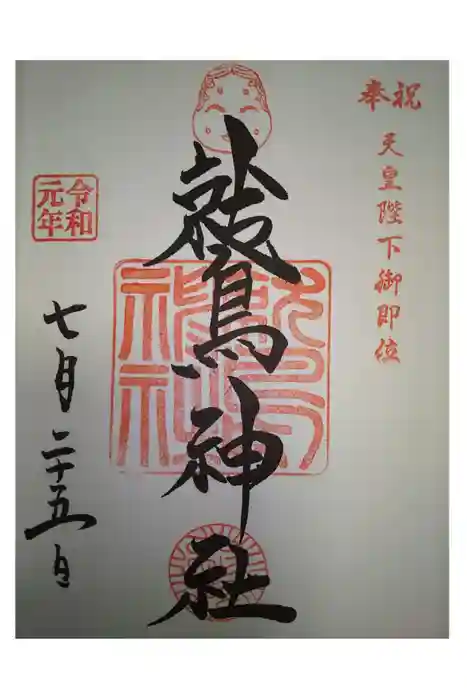 奉祝
天皇陛下御即位
鷲鳥神社
令和
元年
七月二十五日